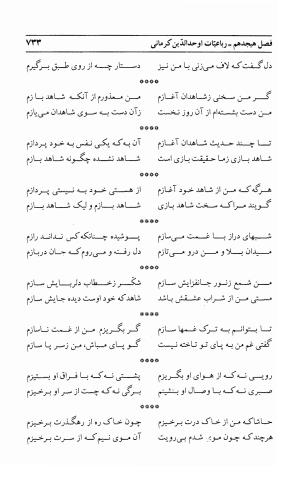 فصل هیجدهم ـ رباعیّات اوحدالدّین کرمانی ۷۳۳
دل گفت که لاف می‌زنی با من نیز دستار چه از روی طبق برگیرم
****
گر من سخنی زشاهدان آغازم من معذورم از آنکه شاهد بازم
من دست بشسته‌ام از آن روز نخست زآن دست به سوی شاهدان می‌یازم
****
تا چند حدیث شاهدان آغازم آن به که یکی نفس به خود پردازم
شاهد بازی زما حقیقت بازی است شاهد نشده چگونه شاهد بازم
****
هرگه که من از شاهد خود آغازم از هستی خود به نیستی پردازم
گویند مرا که سخت شاهد بازی شاهد بازم و لیک شاهد بازم
****
شبهای دراز با غمت می‌سازم پوشیده چنانکه کس نداند رازم
میدان بلا و من درو می‌تازم دل رفت، و می‌روم که جان دربازم
****
من شمع زنور جانفزایش سازم شکّر زخطاب دلربایش سازم
مستی من از شراب عشقش باشد شاهد که خود اوست دیده جایش سازم
****
تا بتوانم به ترک غمها سازم گر بگریزم من از غمت ناسازم
گفتی غم من به پای تو تاخته نیست گو پای مباش، من زسر پا سازم
****
رویی نه که از هوای او بگریزم پشتی نه که با فراق او بستیزم
صبری نه که با وصال او بنشینم برگی نه که چست از سر او برخیزم
****
حاشا که من از خاک درت برخیزم چون خاک ره از رهگذرت برخیزم
هرچند که چون موی شدم بی‌رویت آن موی نیم که از سرت برخیزم